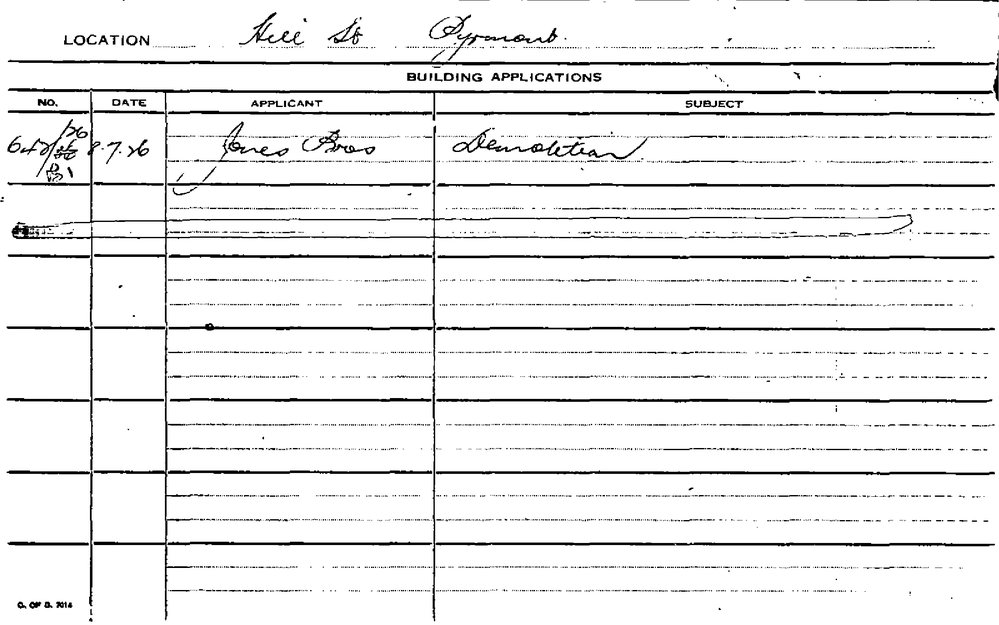 LOCATION Hill St Pyrmont.
BUILDING APPLICATIONS
NO. DATE APPLICANT SUBJECT
/26
8.7.26 Jones Bros Demolition
C. OF S. 7014